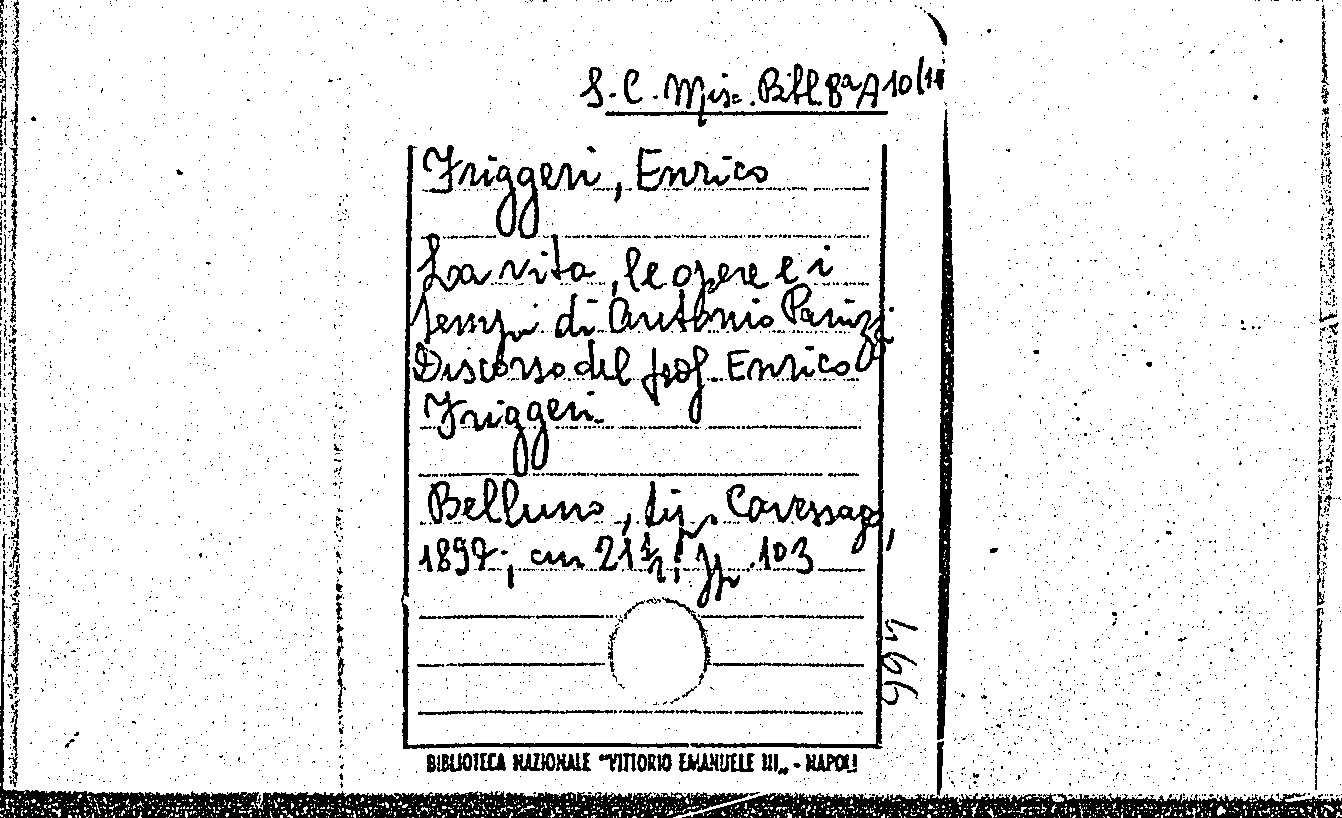 S. C. Misc. Bibl. 8ª A 10/18
Friggeri, Enrico
La vita, le opere e i
tempi di Antonio Panizzi
Discorso del prof. Enrico
Friggeri.
Belluno, tip. Cavessago,
1897; cm 21½; pp. 103
4661
BIBLIOTECA NAZIONALE "VITTORIO EMANUELE III„ - NAPOLI